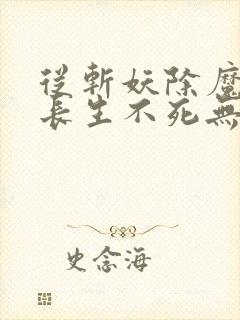 從斬妖除魔
長生不死無
史念海